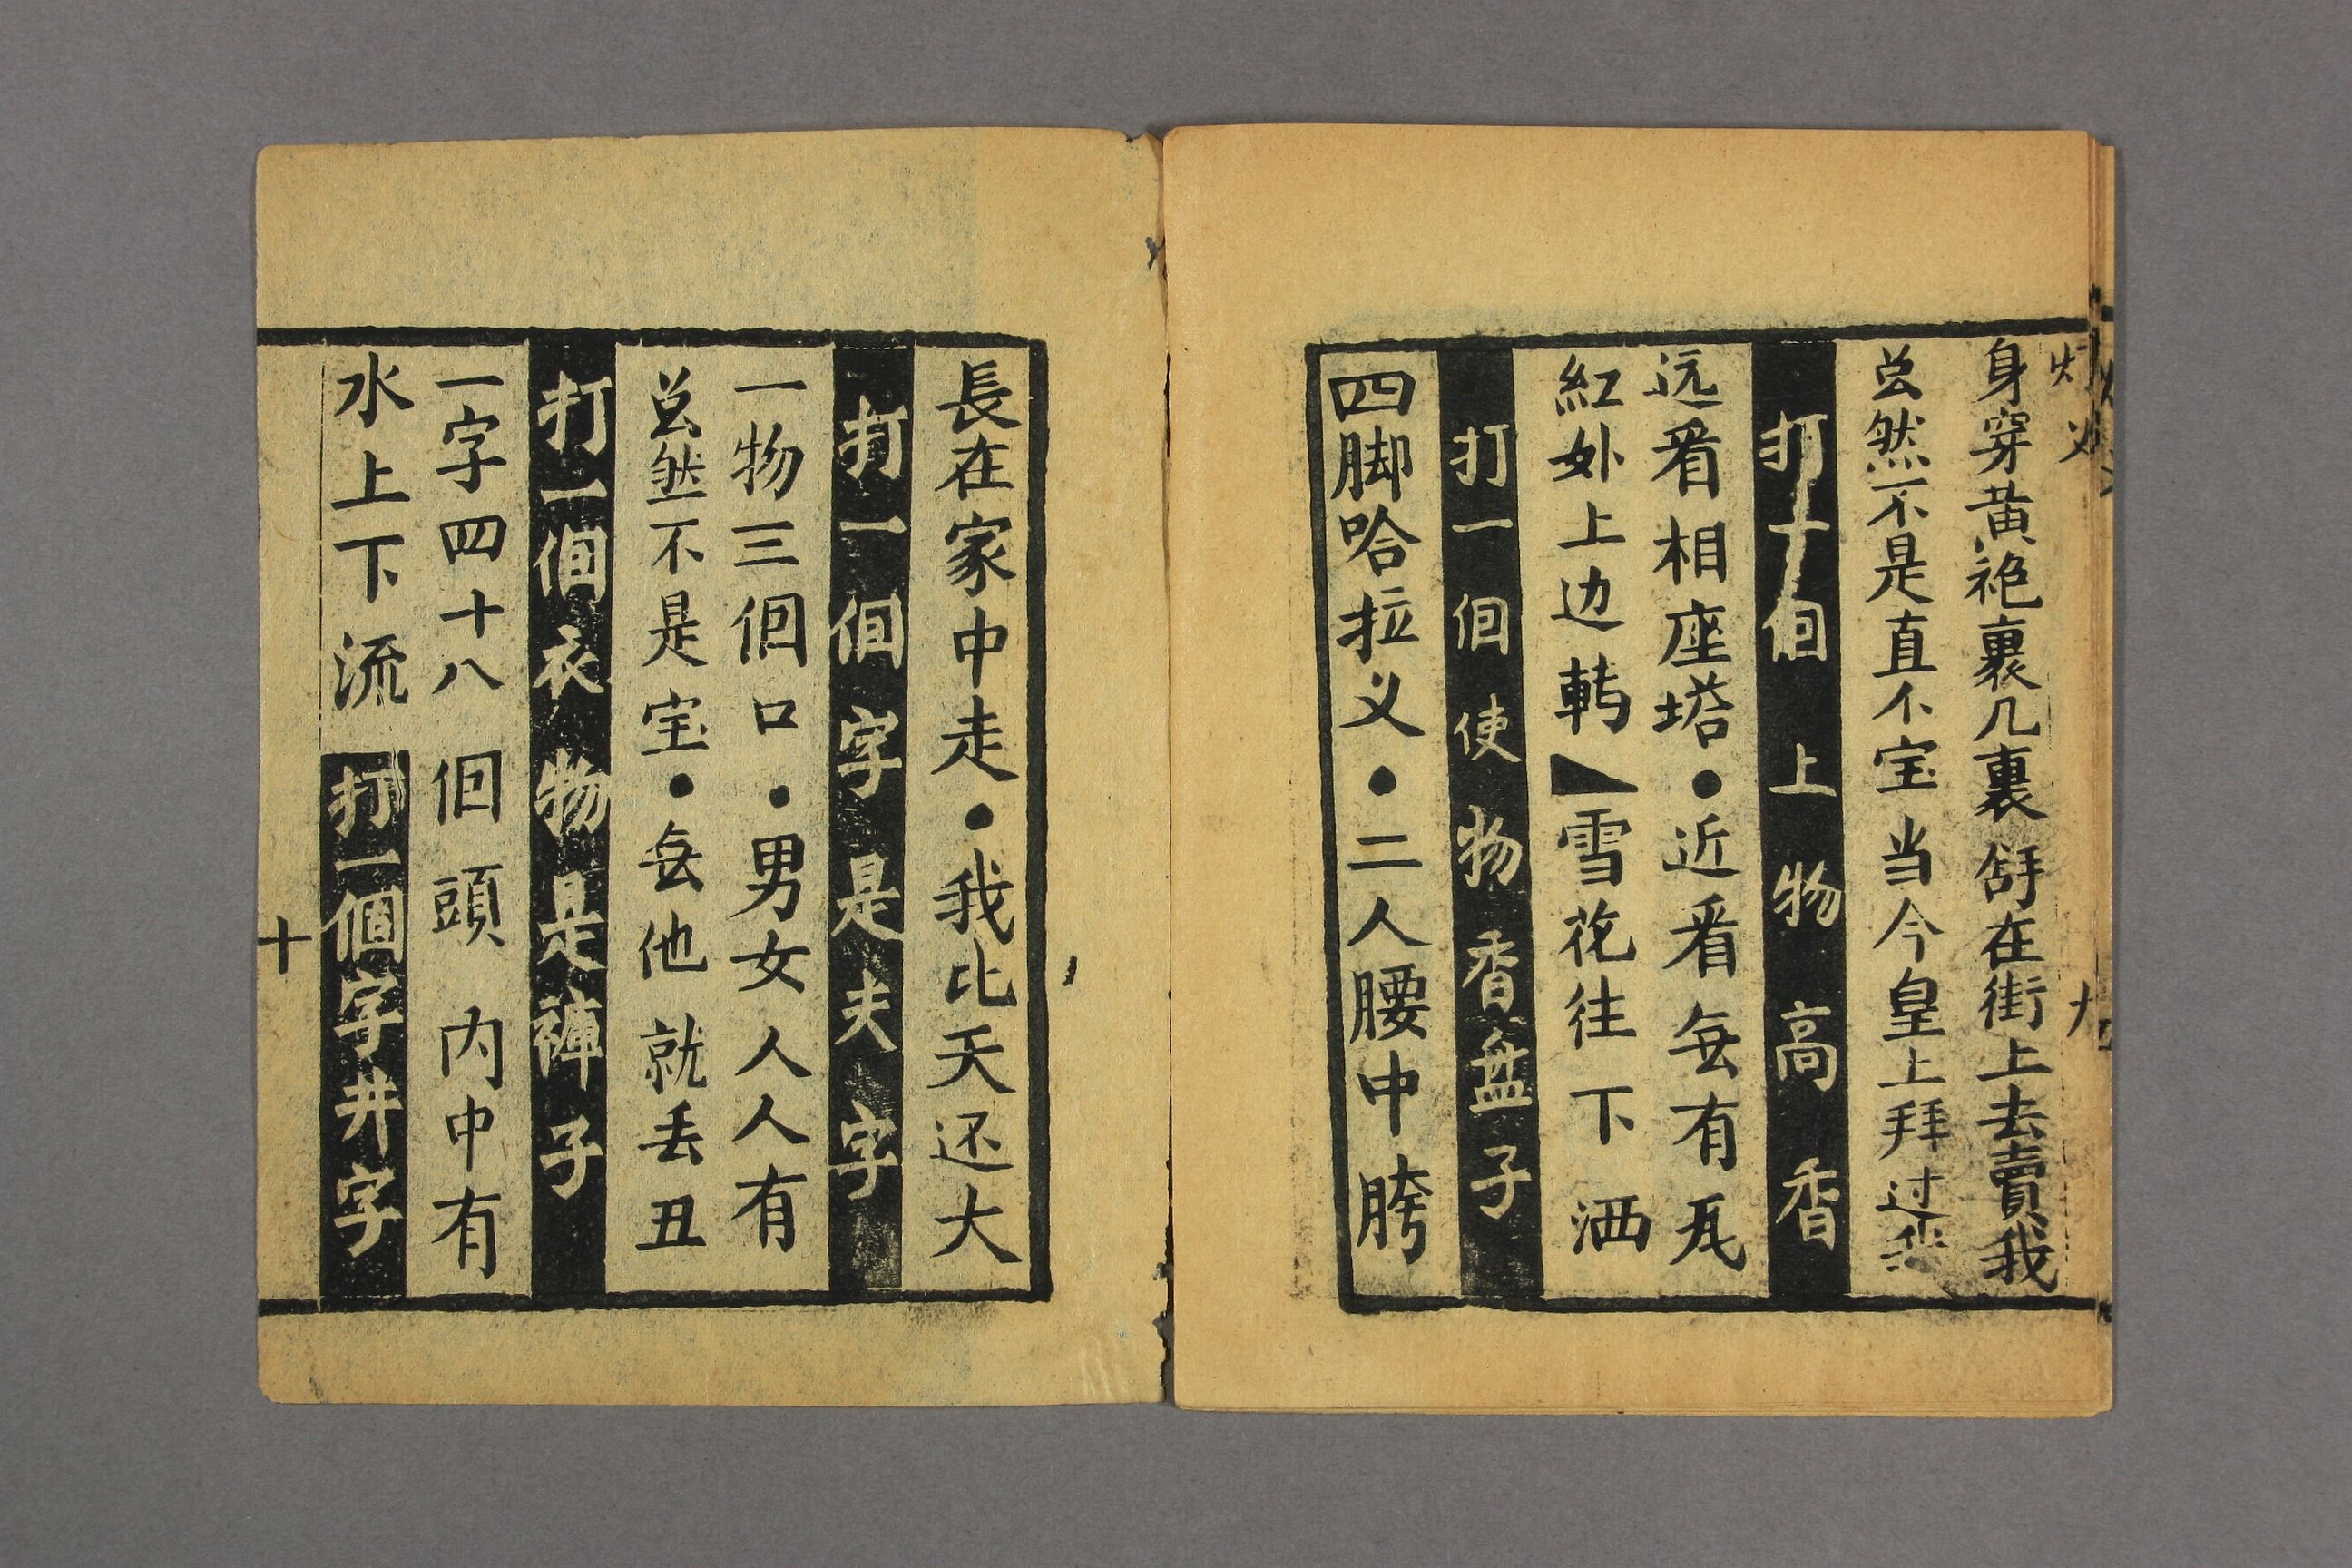 身穿黃袍裹几裏舒在街上去賣我
㒷然不是直不宝当今皇上拜过
打一佪上物高香
远看相座塔●近看毎有瓦
紅外上边轉 雪花往下洒
打一佪使物香盘子
四脚哈拉义●二人腰中胯
長在家中走●我比天还大
打一佪字是夫字
一物三佪口●男女人人有
虽然不是宝●毎他就丢丑
打一個衣物是褲子
一字四十八佪頭内中有
水上下流 打一個字井字
十